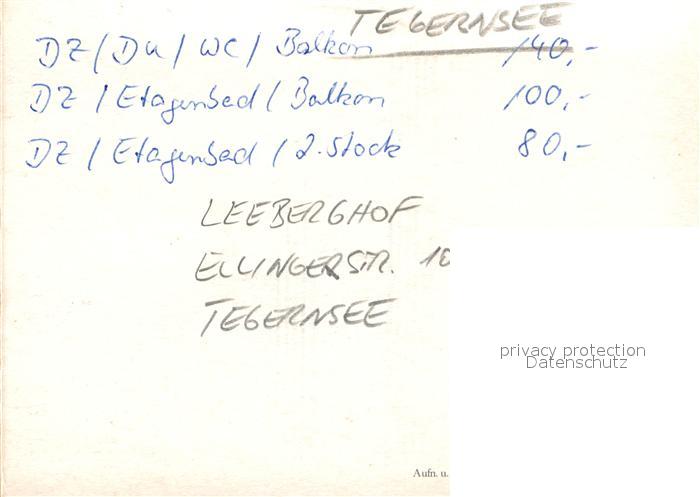 TEGERNSEE
DZ / Du / WC / Balkon 140,-
DZ / Etagenbad / Balkon 100,-
DZ / Etagenbad / 2. Stock 80,-
LEEBERGHOF
ELLINGERSTR. 10
TEGERNSEE
privacy protection
Datenschutz
Aufn. u.